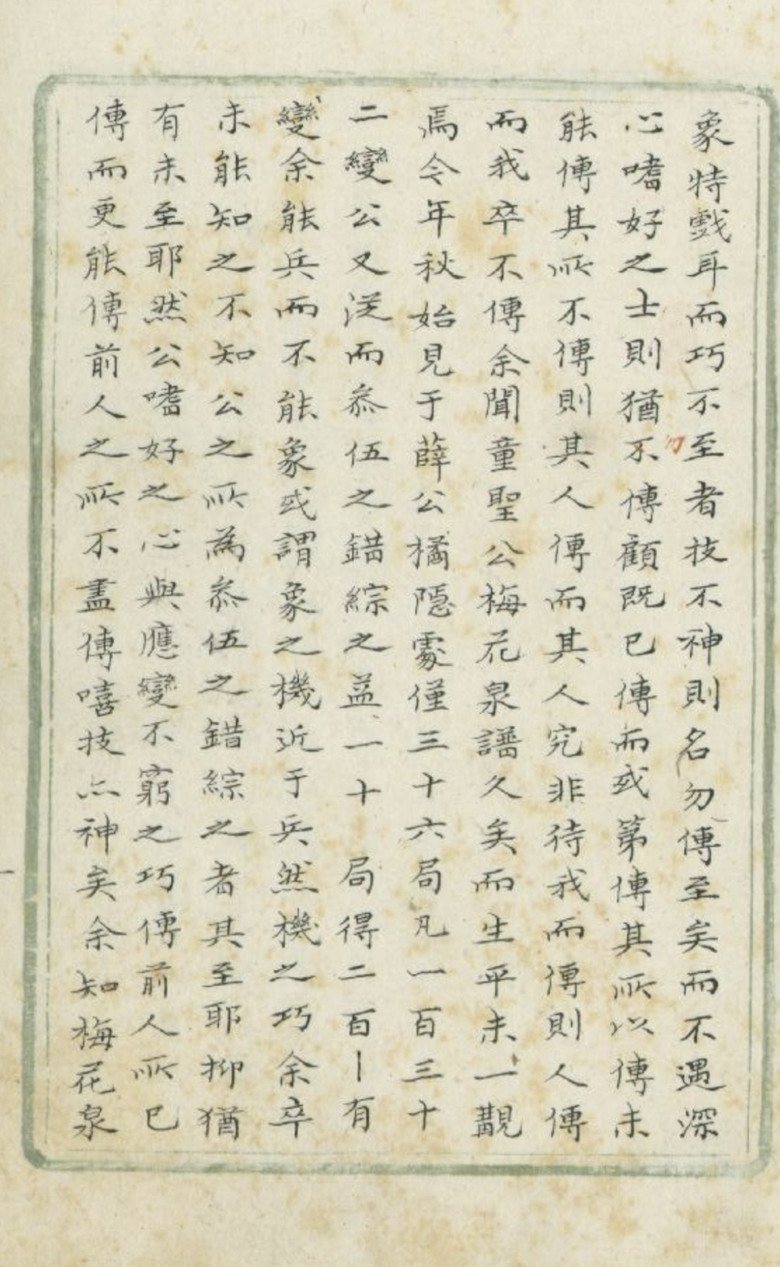 象特戲耳而巧不至者技不神則名勿傳至矣而不遇深
心嗜好之士則猶不傳顧既已傳而或第傳其所以傳未
能傳其所不傳則其人傳而其人究非待我而傳則人傳
而我卒不傳余聞童聖公梅花泉譜久矣而生平未一覩
焉今年秋始見于薛公橘隱處僅三十六局凡一百三十
二變公又從而叅伍之錯綜之益一十 局得二百丨有
變余能兵而不能象或謂象之機近于兵然機之巧余卒
未能知之不知公之所為叅伍之錯綜之者其至耶抑猶
有未至耶然公嗜好之心與應變不窮之巧傳前人所已
傳而更能傳前人之所不盡傳嘻技亦神矣余知梅花泉